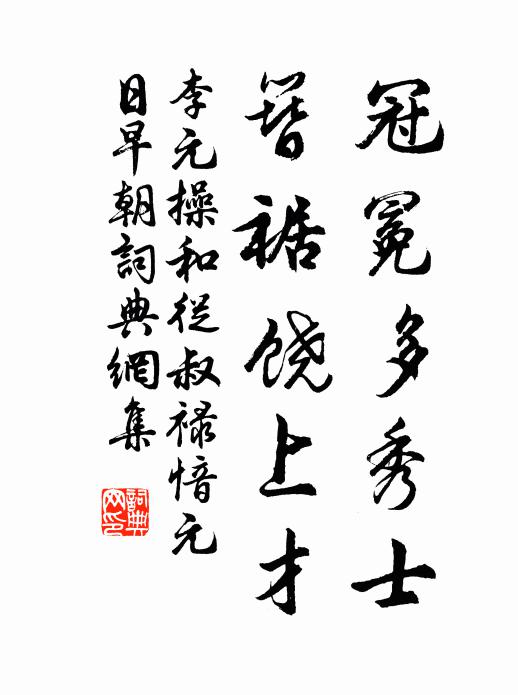 冠冕多秀士
簪裾饶上才
李元操和從叔祿愔元
日早朝詞典網集
詞典
网印